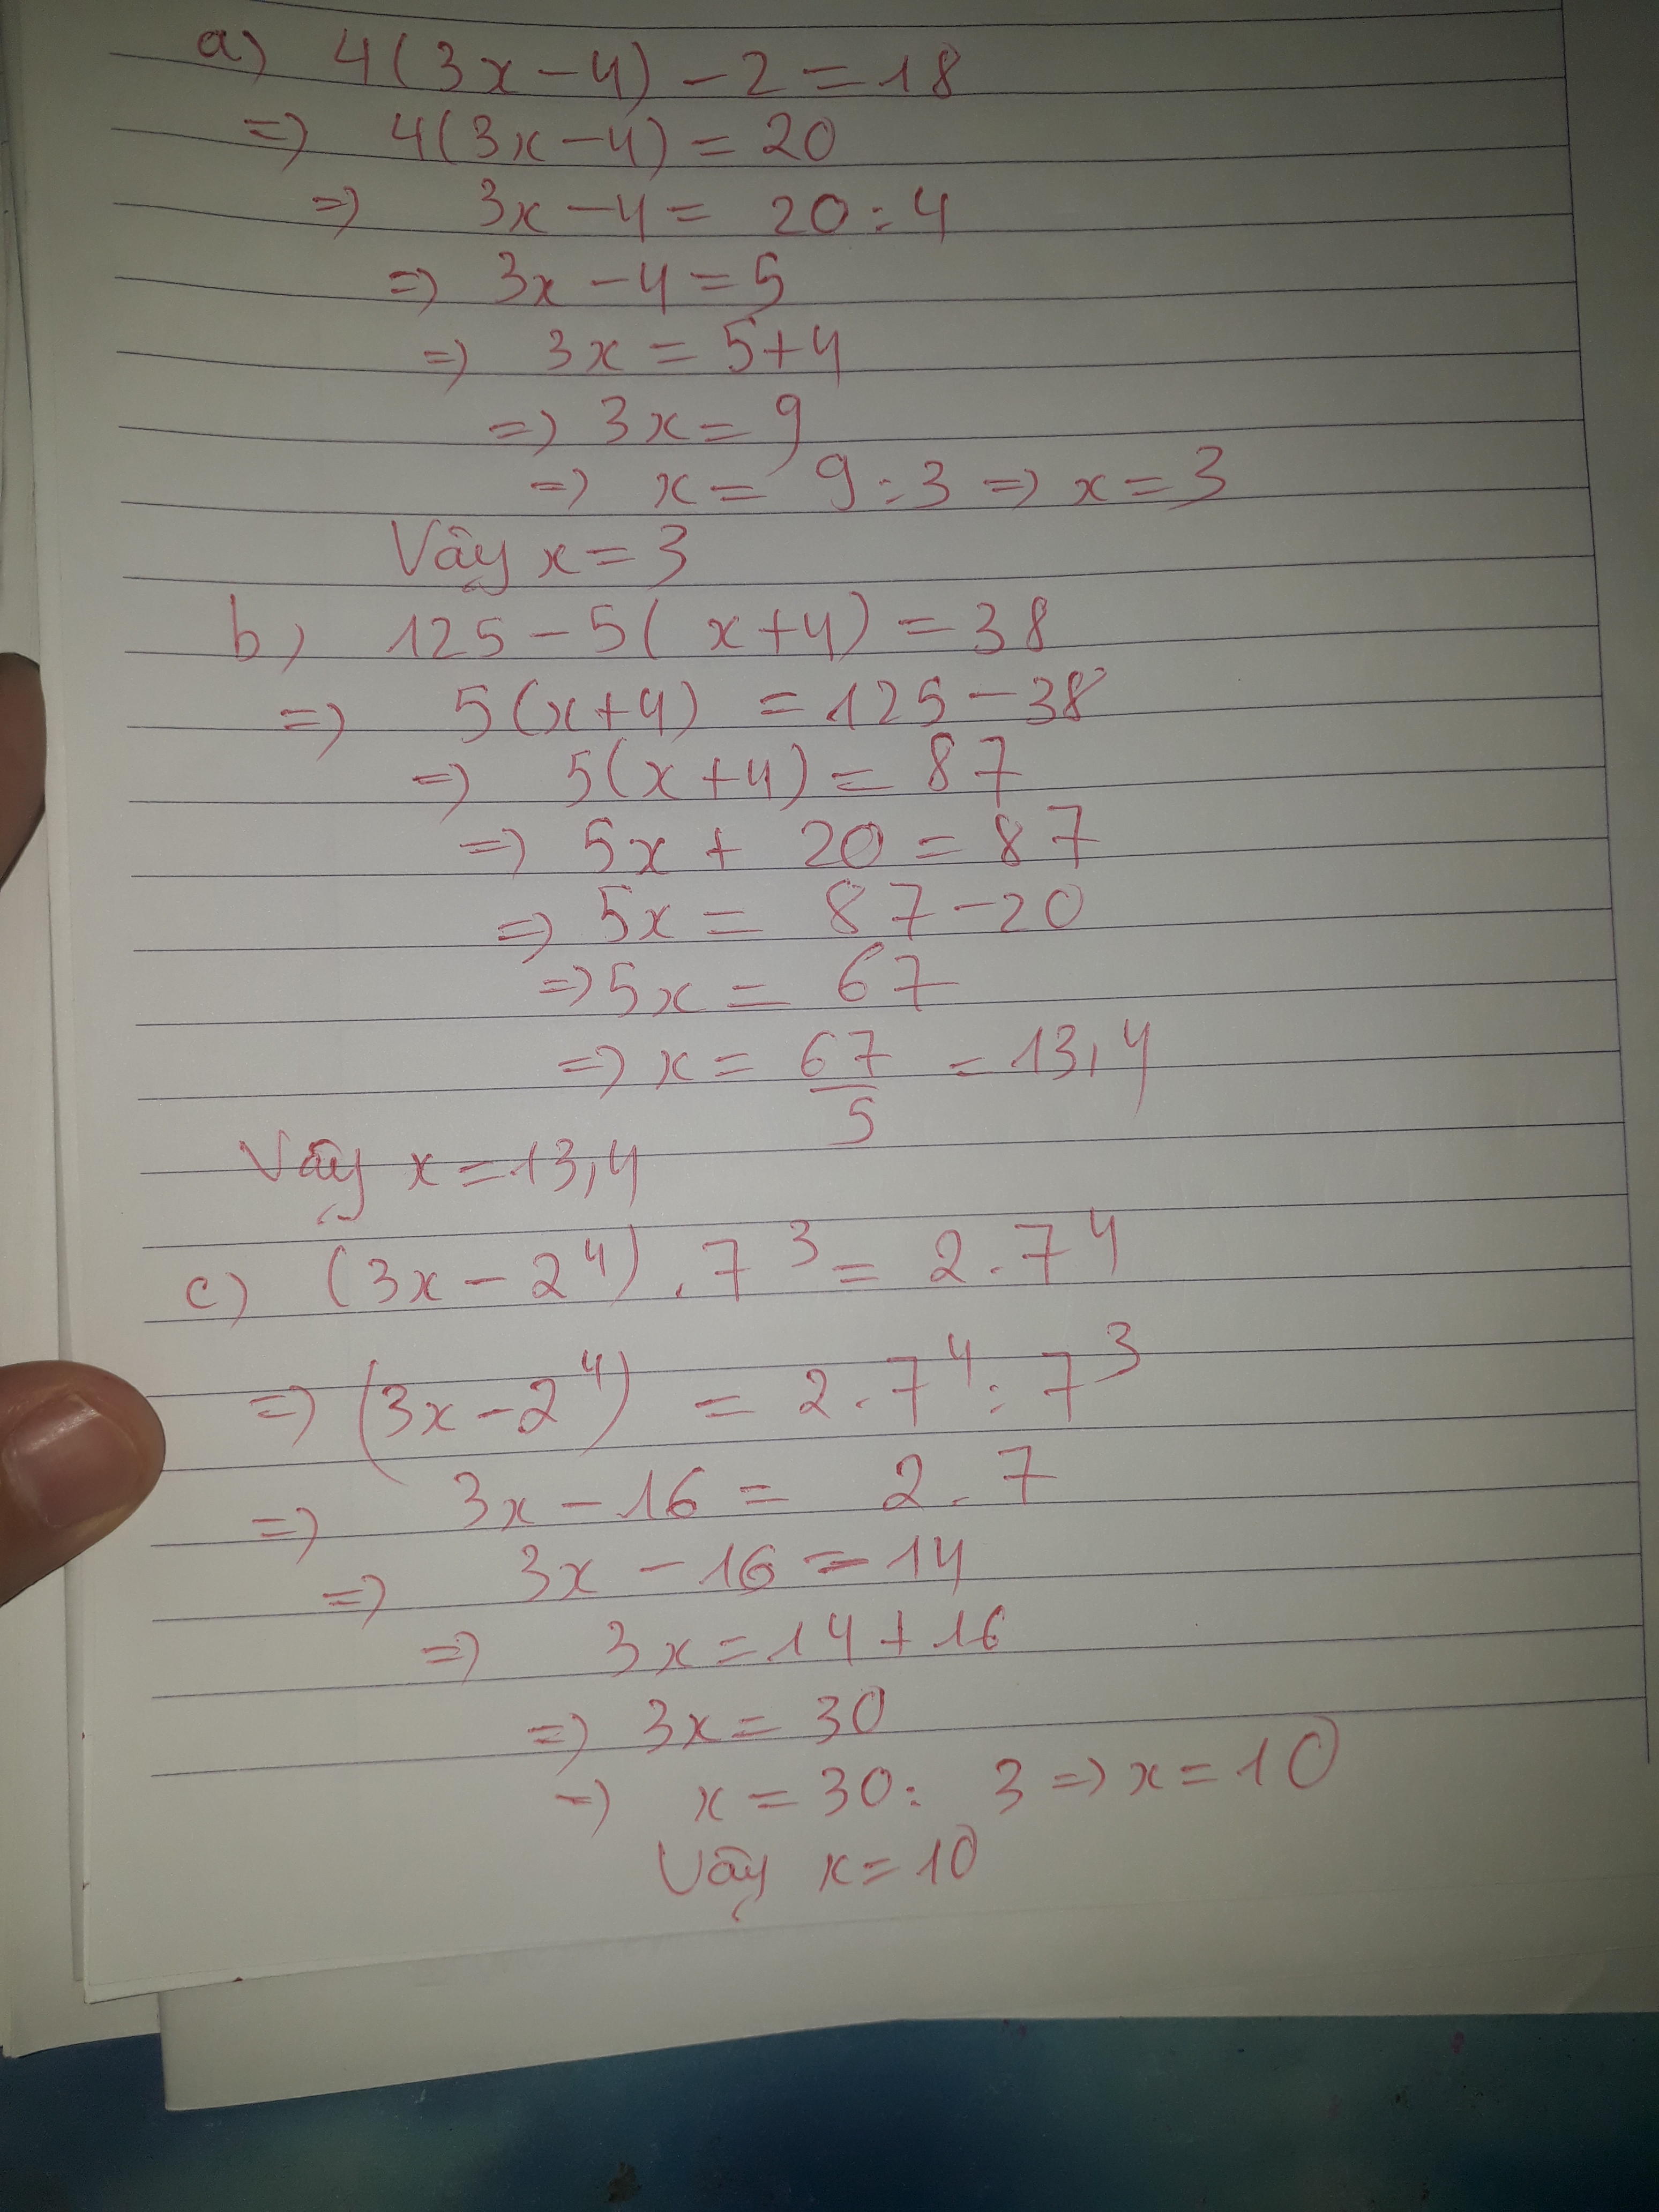 a) 4(3x-4)-2=18
=> 4(3x-4)=20
=> 3x-4= 20:4
=> 3x-4=5
=> 3x=5+4
=> 3x=9
=> x= 9:3 => x=3
Vậy x=3
b) 125-5(x+4)=38
=> 5(x+4) =125-38
=> 5(x+4)= 87
=> 5x+ 20=87
=> 5x= 87-20
=> 5x= 67
=> x= 67/5 =13,4
Vậy x=13,4
c) (3x-2⁴).7³=2.7⁴
=> (3x-2⁴) =2.7⁴:7³
=> 3x-16= 2.7
=> 3x-16=14
=> 3x=14+16
=> 3x=30
=> x=30: 3 => x=10
Vậy x=10